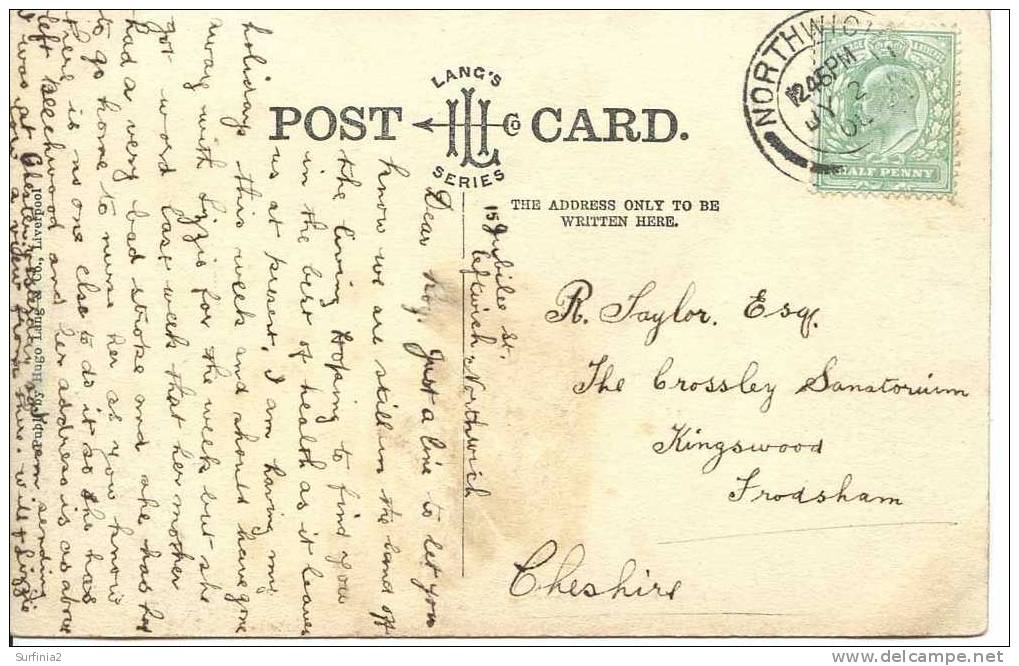 POST CARD.
LANG'S
Co
SERIES
THE ADDRESS ONLY TO BE
WRITTEN HERE.
NORTHWICH
12.45PM
JY 2
HALF PENNY
R. Taylor. Esq.
The Crossley Sanatorium
Kingswood
Frodsham
Cheshire
15 Jubilee St.
Leftwich Northwich
Dear Roy, Just a line to let you
know we are still in the land off
the living hoping to find you
in the best of health as it leaves
us at present. I am having my
holidays this week and should have gone
away with Lizzie for the week but she
got word last week that her mother
had a very bad stroke and she has had
to go home to nurse her as you know
there is no one else to do it so she has
left Beechwood and her address is as above
I was at Chester yesterday so am sending
you a view from there. Will & Lizzie
Hugo Lang & Co., Liverpool
Surfinia2
www.delcampe.net